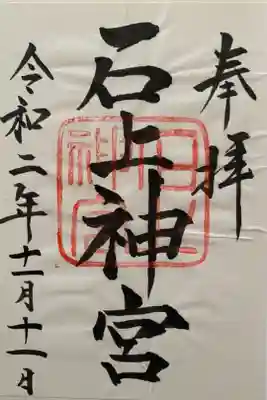 奉拝
石上神宮
令和二年十一月十一日